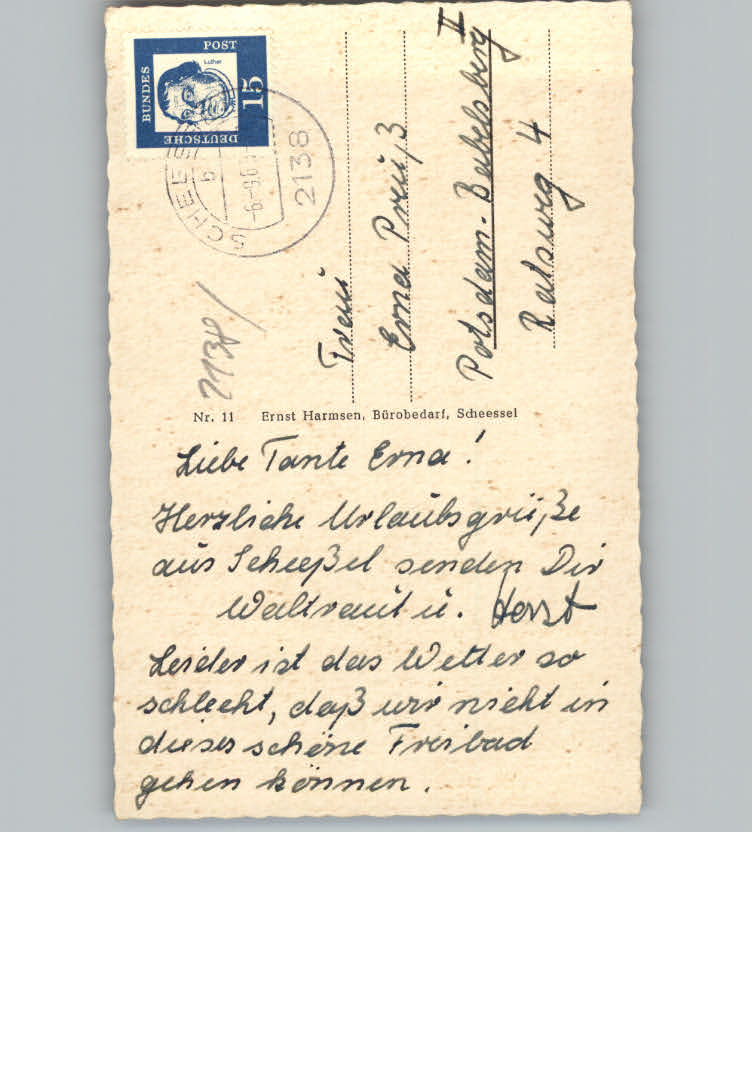 DEUTSCHE
BUNDES
POST
Luther
15
2138
2138/
Frau
Erna Preuß
Potsdam-Babelsberg II
Ratsweg 4
Nr. 11 Ernst Harmsen, Bürobedarf, Scheessel
Liebe Tante Erna!
Herzliche Urlaubsgrüße
aus Scheeßel senden Dir
Waltraut u. Horst
Leider ist das Wetter so
schlecht, daß wir nicht in
dieses schöne Freibad
gehen können.